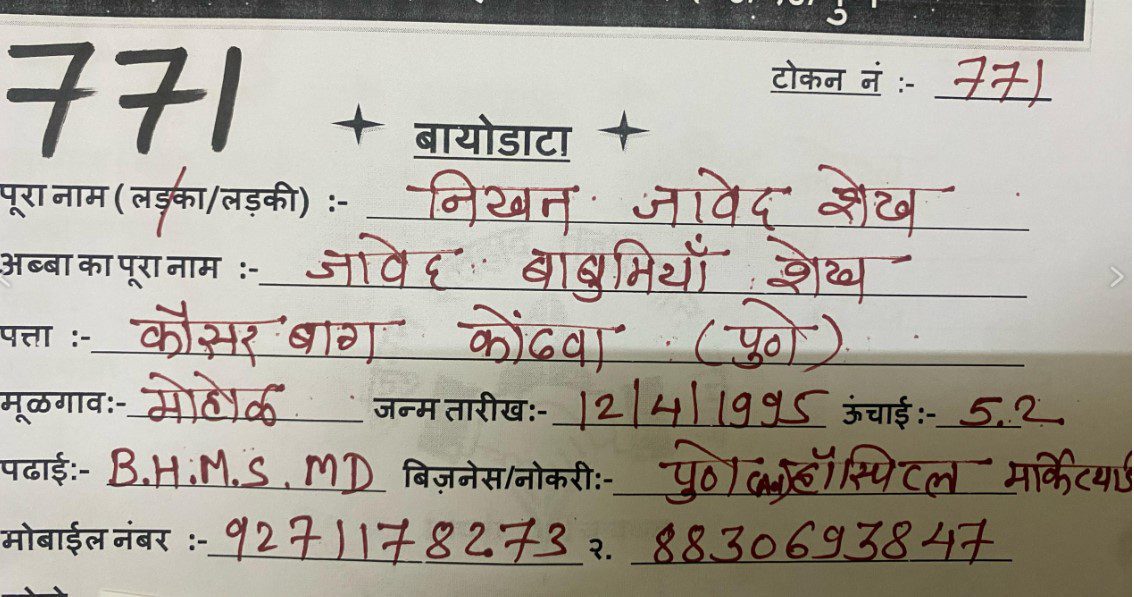 771
टोकन नं :- 771
बायोडाटा
पूरा नाम ( लड़का/लड़की) :- निखत जावेद शेख
अब्बा का पूरा नाम :- जावेद बाबुमियाँ शेख
पत्ता :- कौसर बाग कोंढवा (पुणे)
मूळगाव:- मोहोळ जन्म तारीख:- 12/4/1995 ऊंचाई :- 5.2
पढाई:- B.H.M.S. MD बिज़नेस/नोकरी:- पुणे हॉस्पिटल मार्केटयार्ड
मोबाईल नंबर :- 9271178273 २. 8830693847